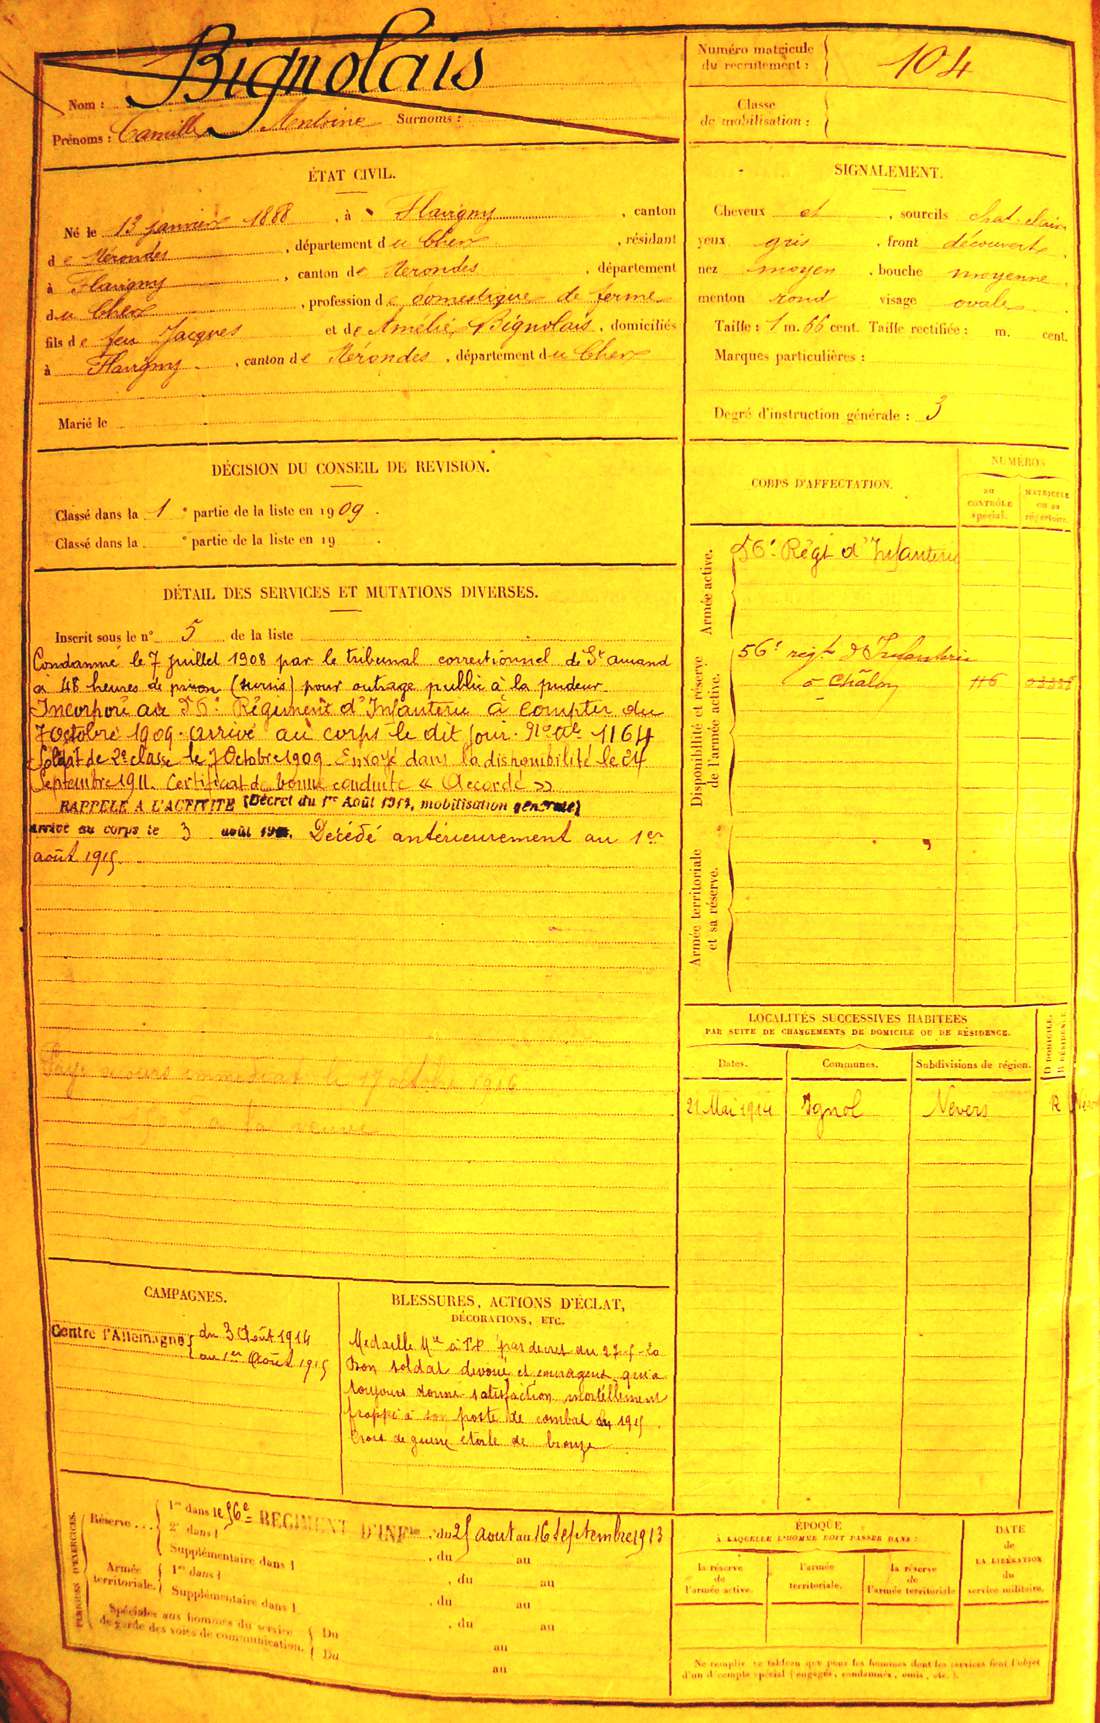 Bignolais
Nom :
Prénoms : Camille Antoine Surnoms :
Numéro matricule
du recrutement : 104
Classe
de mobilisation :
ÉTAT CIVIL.
Né le 13 janvier 1888, à Flavigny, canton
de Nérondes, département du Cher, résidant
à Flavigny, canton de Nérondes, département
du Cher, profession de domestique de ferme
fils de feu Jacques et de Amélie Bignolais, domiciliés
à Flavigny, canton de Nérondes, département du Cher
Marié le
SIGNALEMENT.
Cheveux et, sourcils chat. clairs
yeux gris, front découvert
nez moyen, bouche moyenne
menton rond visage ovale
Taille : 1 m. 66 cent. Taille rectifiée : m. cent.
Marques particulières :
Degré d'instruction générale : 3
DÉCISION DU CONSEIL DE REVISION.
Classé dans la 1e partie de la liste en 1909.
Classé dans la e partie de la liste en 19 .
DÉTAIL DES SERVICES ET MUTATIONS DIVERSES.
Inscrit sous le n° 5 de la liste
Condamné le 7 juillet 1908 par le tribunal correctionnel de St amand
à 48 heures de prison (sursis) pour outrage public à la pudeur
Incorporé au 56e Régiment d'Infanterie à compter du
7 octobre 1909. arrivé au corps le dit jour. No Mle 1164
Soldat de 2e classe le 7 Octobre 1909. Envoyé dans la disponibilité le 24
Septembre 1911. Certificat de bonne conduite « Accordé »
RAPPELÉ A L'ACTIVITÉ (Décret du 1er Août 1914, mobilisation générale)
arrivé au corps le 3 août 1914. Décédé antérieurement au 1er
août 1915.
17 octobre 1916
à la veuve
CORPS D'AFFECTATION.
NUMÉROS
AU CONTRÔLE spécial.
MATRICULE OU AU répertoire.
Armée active.
56e Régt d'Infanterie
Disponibilité et réserve
de l'armée active.
56e régt d'Infanterie
à Châlon 116
Armée territoriale
et sa réserve.
LOCALITÉS SUCCESSIVES HABITÉES
PAR SUITE DE CHANGEMENTS DE DOMICILE OU DE RÉSIDENCE.
Dates. Communes. Subdivisions de région. D DOMICILE. R RÉSIDENCE
21 Mai 1914 Ignol Nevers R
CAMPAGNES.
Contre l'Allemagne du 3 Août 1914
au 1er Août 1915
BLESSURES, ACTIONS D'ÉCLAT,
DÉCORATIONS, ETC.
Medaille Mre à TP par decret du 27-5-20
Bon soldat devoué et courageux qui a
toujours donné satisfaction mortellement
frappé à son poste de combat en 1915.
Croix de guerre étoile de bronze
PÉRIODES D'EXERCICES.
Réserve ... 1re dans le 56e REGIMENT D'INFie, du 25 aout au 16 septembre 1913
2e dans l , du au
Supplémentaire dans l
Armée
territoriale. 1re dans l , du au
Supplémentaire dans l , du au
Spéciales aux hommes du service
de garde des voies de communication. Du au
Du au
ÉPOQUE
À LAQUELLE L'HOMME DOIT PASSER DANS :
la réserve
de
l'armée active.
l'armée
territoriale.
la réserve
de
l'armée territoriale
DATE
de
LA LIBÉRATION
du
service militaire.
Ne remplir ce tableau que pour les hommes dont les services font l'objet
d'un décompte spécial (engagés, condamnés, omis, etc.).